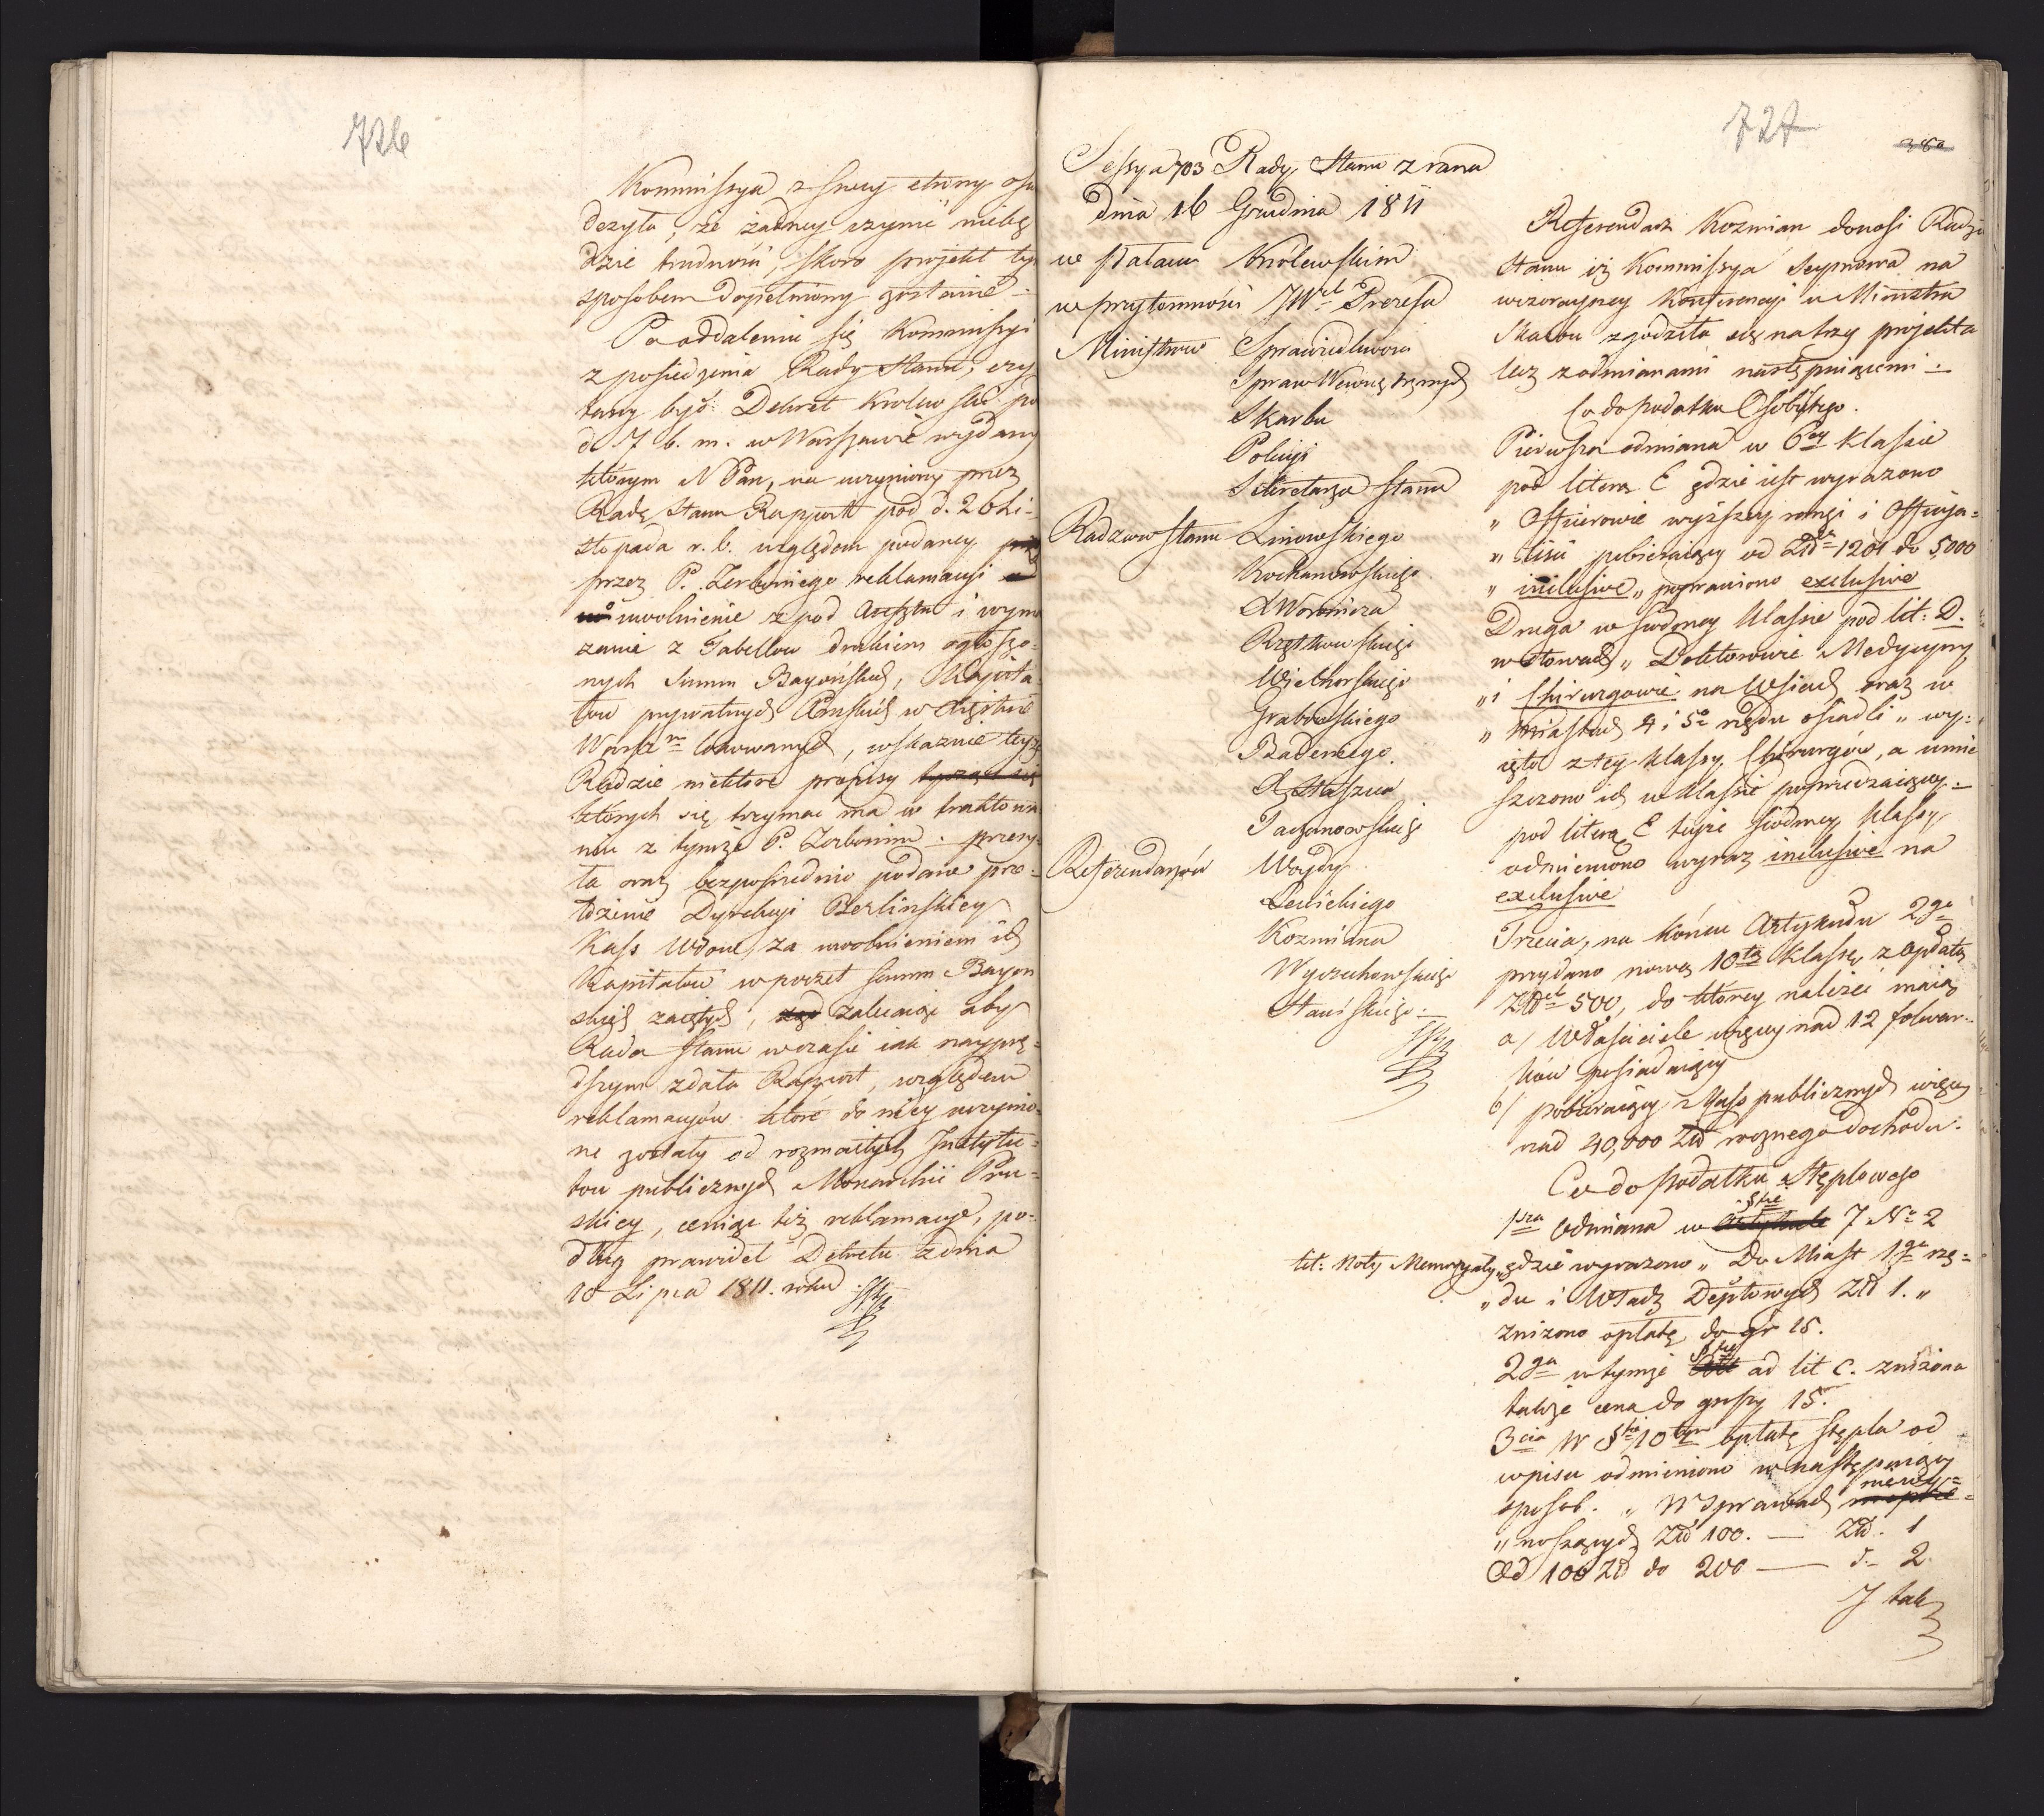 726
Kommissya z swey strony osw
dczyła, że żadney czynić niebę
dzie trudności, skoro projekt tym
sposobem dopełniony zostanie –
Po oddaleniu się Kommissyi
z posiedzenia Rady Stanu, czy
tany był Dekret Królewski po
d. 7 b. m. w Warszawie wydany
którym N Pan, na uczyniony przez
Radę Stanu Rapport pod d. 26 Li-
stopada r. b. względem podaney
przez P. Zerboniego reklamacyi
o uwolnienie z pod Aresztu i wyma
zanie z Tabellow drukiem ogłoszo-
nych Summ Bayońskich, Kapita-
łow prywatnych Pruskich w Xięstwie
Warsz m lokowanych, wskaznie teyże
Radzie niektóre przepisy tyczące się
których się trzymac ma w traktowa
niu z tymże P. Zerbonim. przesy-
ła oraz bezpośrednio podane pro-
źdzenie Dyrekcyi Berlinskiey
Kass Wdow, za uwolnieniem ich
Kapitałow w poczet summ Bayon
skich zaiętych, zalecaiąc aby
Rada Stanu w czasie iak nayprę-
dszym zdała Rapport, względem
reklamacyow które do niey uczynio-
ne zostały od rozmaitych Instytu-
tow publicznych Monarchii Pru-
skiey, ceniąc też reklamacye, po-
dług prawideł Dekretu z dnia
10 Lipca 1811. roku
727
380
Sessya 703 Rady Stanu z rana
dnia 16 Grudnia 1811
w Pałacu Królewskim
w przytomności JW Prezesa
Ministrow Sprawiedliwosci
Spraw Wewnętrznych
Skarbu
Policyi
Sekretarza Stanu
Radzcow Stanu Linowskiego
Kochanowskiego
X Woronicza
Rzętkowskiego
Wielhorskiego
Grabowskiego
Badeniego.
X Staszica
Taczanowskiego
Referendarzów Woydy
Lewickiego
Kozmiana
Wyczechowskiego
Stawiskiego.
Referendarz Kozmian donosi Radzie
Stanu iż Kommissya Seymowa na
wczorayszey Konferencyi u Ministra
Skarbu zgodziła się na trzy projekta
lecz z odmianami następuiącemi:
Co do podatku Osobistego.
Pierwsza odmiana w 6ey Klassie
pod literą E gdzie iest wyrazono
„ Officerowie wyższey rangi i Officya-
„ lisci pobieraiący od Złł 1201 do 5000
„ inclusive „ poprawiono exclusive
Druga w siódmey Klassie pod lit: D.
w słowach „ Doktorowie Medycyny
„ i Chirurgowie na Wsiach oraz w
„ Miastach 4 i 5o rzędu osiadli „ wy-
ięto z tey klassy Chirurgów, a umie
szczono ich w klassie poprzedzaiącey –
pod literą E teyże siódmey klassy
odmieniono wyraz inclusive na
exclusive
Trzecia, na końcu Artykułu 2go
przydano nową 10tą Klassę z opłatą
Złł 500, do ktorey należeć maią
a/ Właściciele więcey nad 12 folwar-
ków posiadaiący
b/ pobieraiący z Kass publicznych więcey
nad 40,000 Złł rocznego dochodu.
Co do Podatku Stęplowego
1sza Odmiana w Artykule §fie 7 No 2
lit: Noty Memoryały „ gdzie wyrazono „ Do Miast 1go rzę-
„ du i Władz Deptowych Złł 1. „
znizono opłatę do gr 15.
2ga w tymże §fie ad lit C. znizona
takze cena do groszy 15.
3cia W §fie 10tym opłatę stępla od
wpisu odmieniono w następuiący
sposob. „ W Sprawach niewy-
„ noszących Złł 100. — Złł. 1
Od 100 Złł do 200 — d.- 2.
J tak